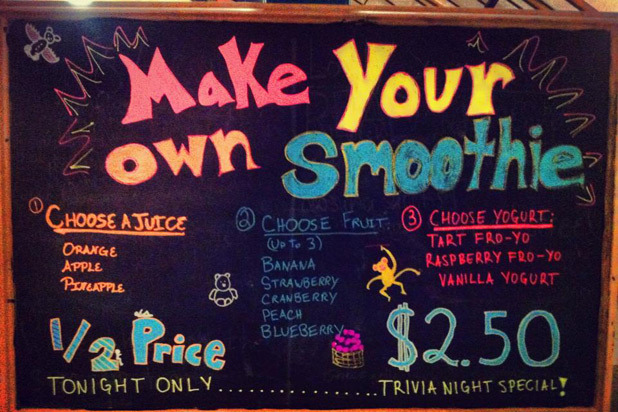 Make Your
Own Smoothie
① CHOOSE A JUICE
ORANGE
APPLE
PINEAPPLE
② CHOOSE FRUIT:
(UP TO 3)
BANANA
STRAWBERRY
CRANBERRY
PEACH
BLUEBERRY
③ CHOOSE YOGURT:
TART FRO-YO
RASPBERRY FRO-YO
VANILLA YOGURT
1/2 Price
$2.50
TONIGHT ONLY................TRIVIA NIGHT SPECIAL!